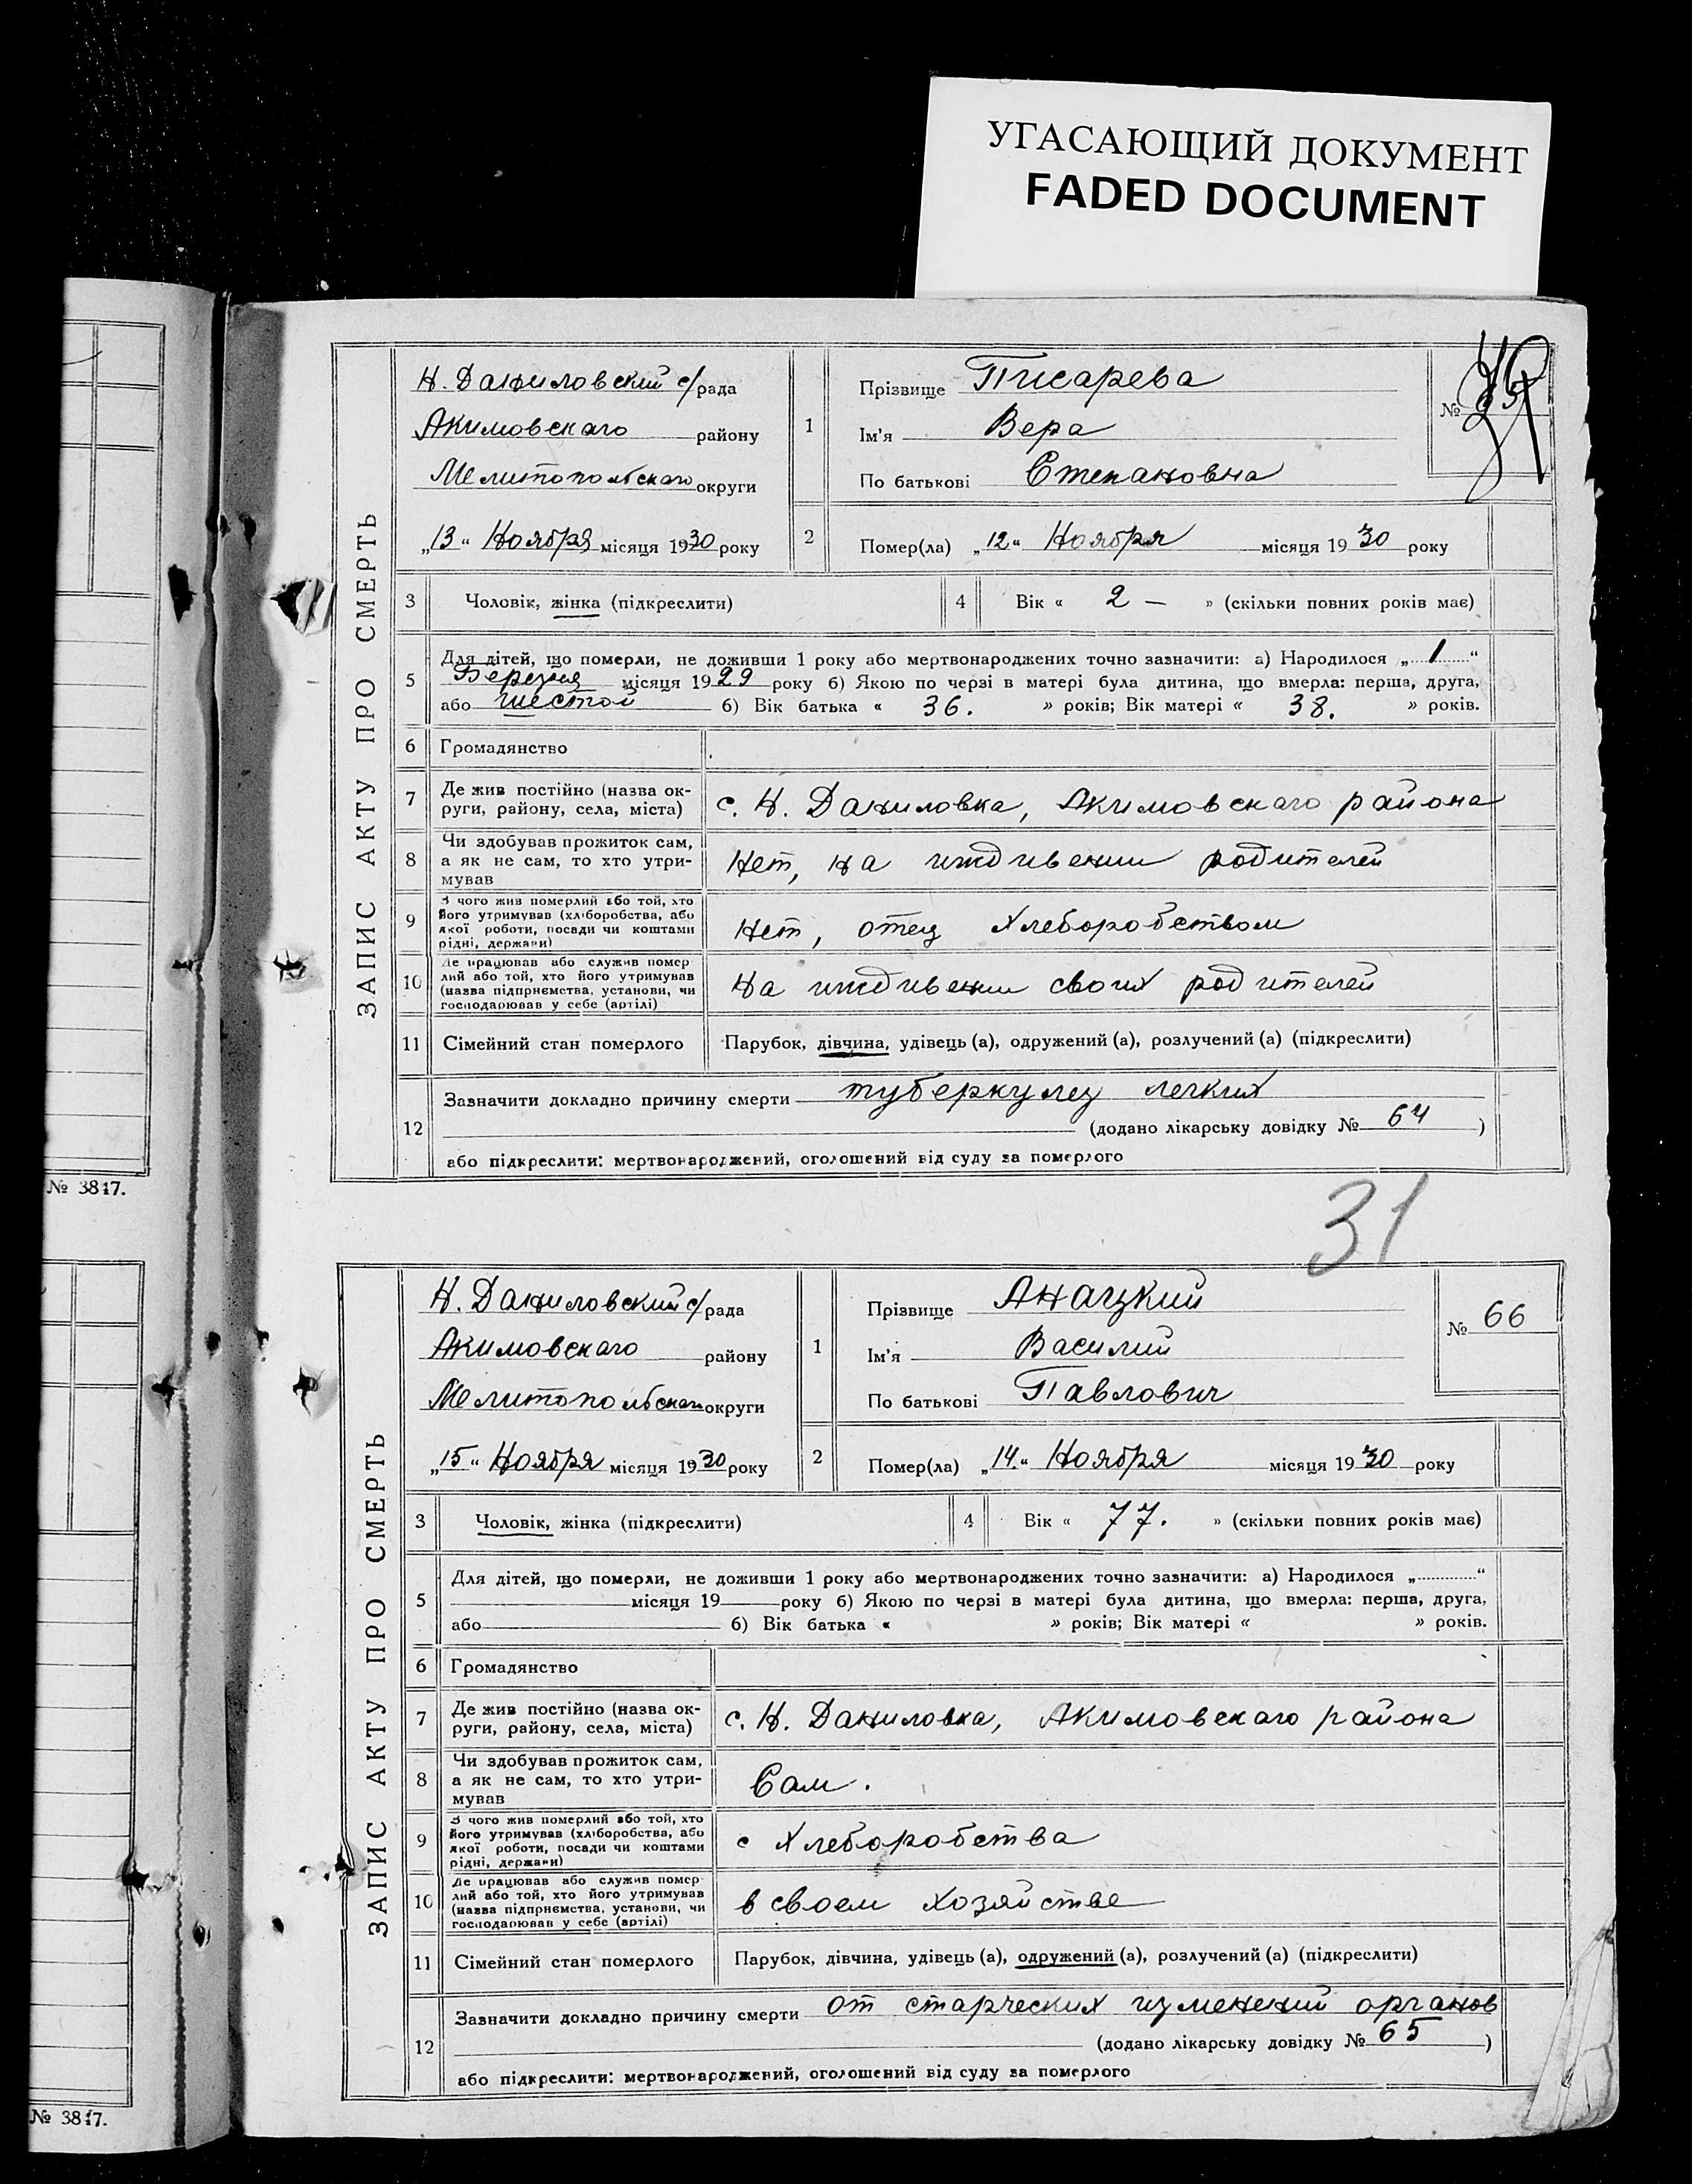 УГАСАЮЩИЙ ДОКУМЕНТ
FADED DOCUMENT
ЗАПИС АКТУ ПРО СМЕРТЬ
Н. Даниловский с/рада
Акимовскаго району
Мелитопольскаго округи
„13“ Ноября місяця 1930 року
1
Прізвище Писарева
Ім'я Вера
По батькові Степановна
№
2
Помер(ла) „12“ Ноября місяця 1930 року
3 Чоловік, жінка (підкреслити)
4 Вік « 2 — » (скільки повних років має)
5 Для дітей, що померли, не доживши 1 року або мертвонароджених точно зазначити: а) Народилося „1“
Березня місяця 1929 року б) Якою по черзі в матері була дитина, що вмерла: перша, друга,
або шестой б) Вік батька « 36. » років; Вік матері « 38. » років.
6 Громадянство
7 Де жив постійно (назва ок-
руги, району, села, міста)
с. Н. Даниловка, Акимовскаго района
8 Чи здобував прожиток сам,
а як не сам, то хто утри-
мував
Нет, на иждивении родителей
9 З чого жив померлий або той, хто
його утримував (хліборобства, або
якої роботи, посади чи коштами
рідні, держави)
Нет, отец Хлеборобством
10 Де працював або служив помер-
лий або той, хто його утримував
(назва підприємства, установи, чи
господарював у себе (артілі)
На иждивении своих родителей
11 Сімейний стан померлого
Парубок, дівчина, удівець (а), одружений (а), розлучений (а) (підкреслити)
12 Зазначити докладно причину смерти туберкулез легких
(додано лікарську довідку № 64 )
або підкреслити: мертвонароджений, оголошений від суду за померлого
№ 3817.
31
ЗАПИС АКТУ ПРО СМЕРТЬ
Н. Даниловский с/рада
Акимовскаго району
Мелитопольскаго округи
„15“ Ноября місяця 1930 року
1
Прізвище Анацкий
Ім'я Василий
По батькові Павлович
№ 66
2
Помер(ла) „14.“ Ноября місяця 1930 року
3 Чоловік, жінка (підкреслити)
4 Вік « 77. » (скільки повних років має)
5 Для дітей, що померли, не доживши 1 року або мертвонароджених точно зазначити: а) Народилося „ “
місяця 19 року б) Якою по черзі в матері була дитина, що вмерла: перша, друга,
або б) Вік батька « » років; Вік матері « » років.
6 Громадянство
7 Де жив постійно (назва ок-
руги, району, села, міста)
с. Н. Даниловка, Акимовскаго района
8 Чи здобував прожиток сам,
а як не сам, то хто утри-
мував
Сам.
9 З чого жив померлий або той, хто
його утримував (хліборобства, або
якої роботи, посади чи коштами
рідні, держави)
с Хлеборобства
10 Де працював або служив помер-
лий або той, хто його утримував
(назва підприємства, установи, чи
господарював у себе (артілі)
в своем хозяйстве
11 Сімейний стан померлого
Парубок, дівчина, удівець (а), одружений (а), розлучений (а) (підкреслити)
12 Зазначити докладно причину смерти от старческих изменений органов
(додано лікарську довідку № 65 )
або підкреслити: мертвонароджений, оголошений від суду за померлого
№ 3817.